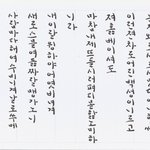 이런젼차로어린백셩이니르고
져홀베이셔도
마참내제뜨들시러펴디몯할노미하
니라
내이랄윙하야어엿비너겨
새로스믈여듧짜랄맹가노니
사람마다해여수비니겨날로쑤메